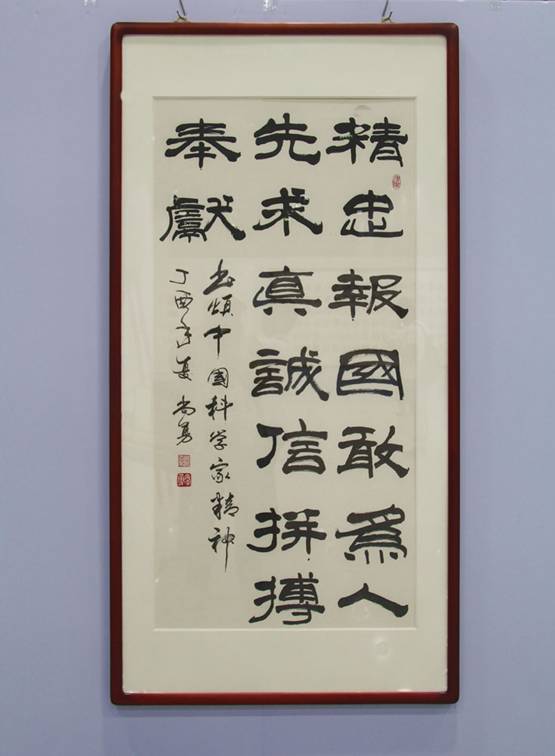 精忠報國敢為人
先求真誠信拼搏
奉獻
書頌中國科學家精神
丁酉年夏 尚勇